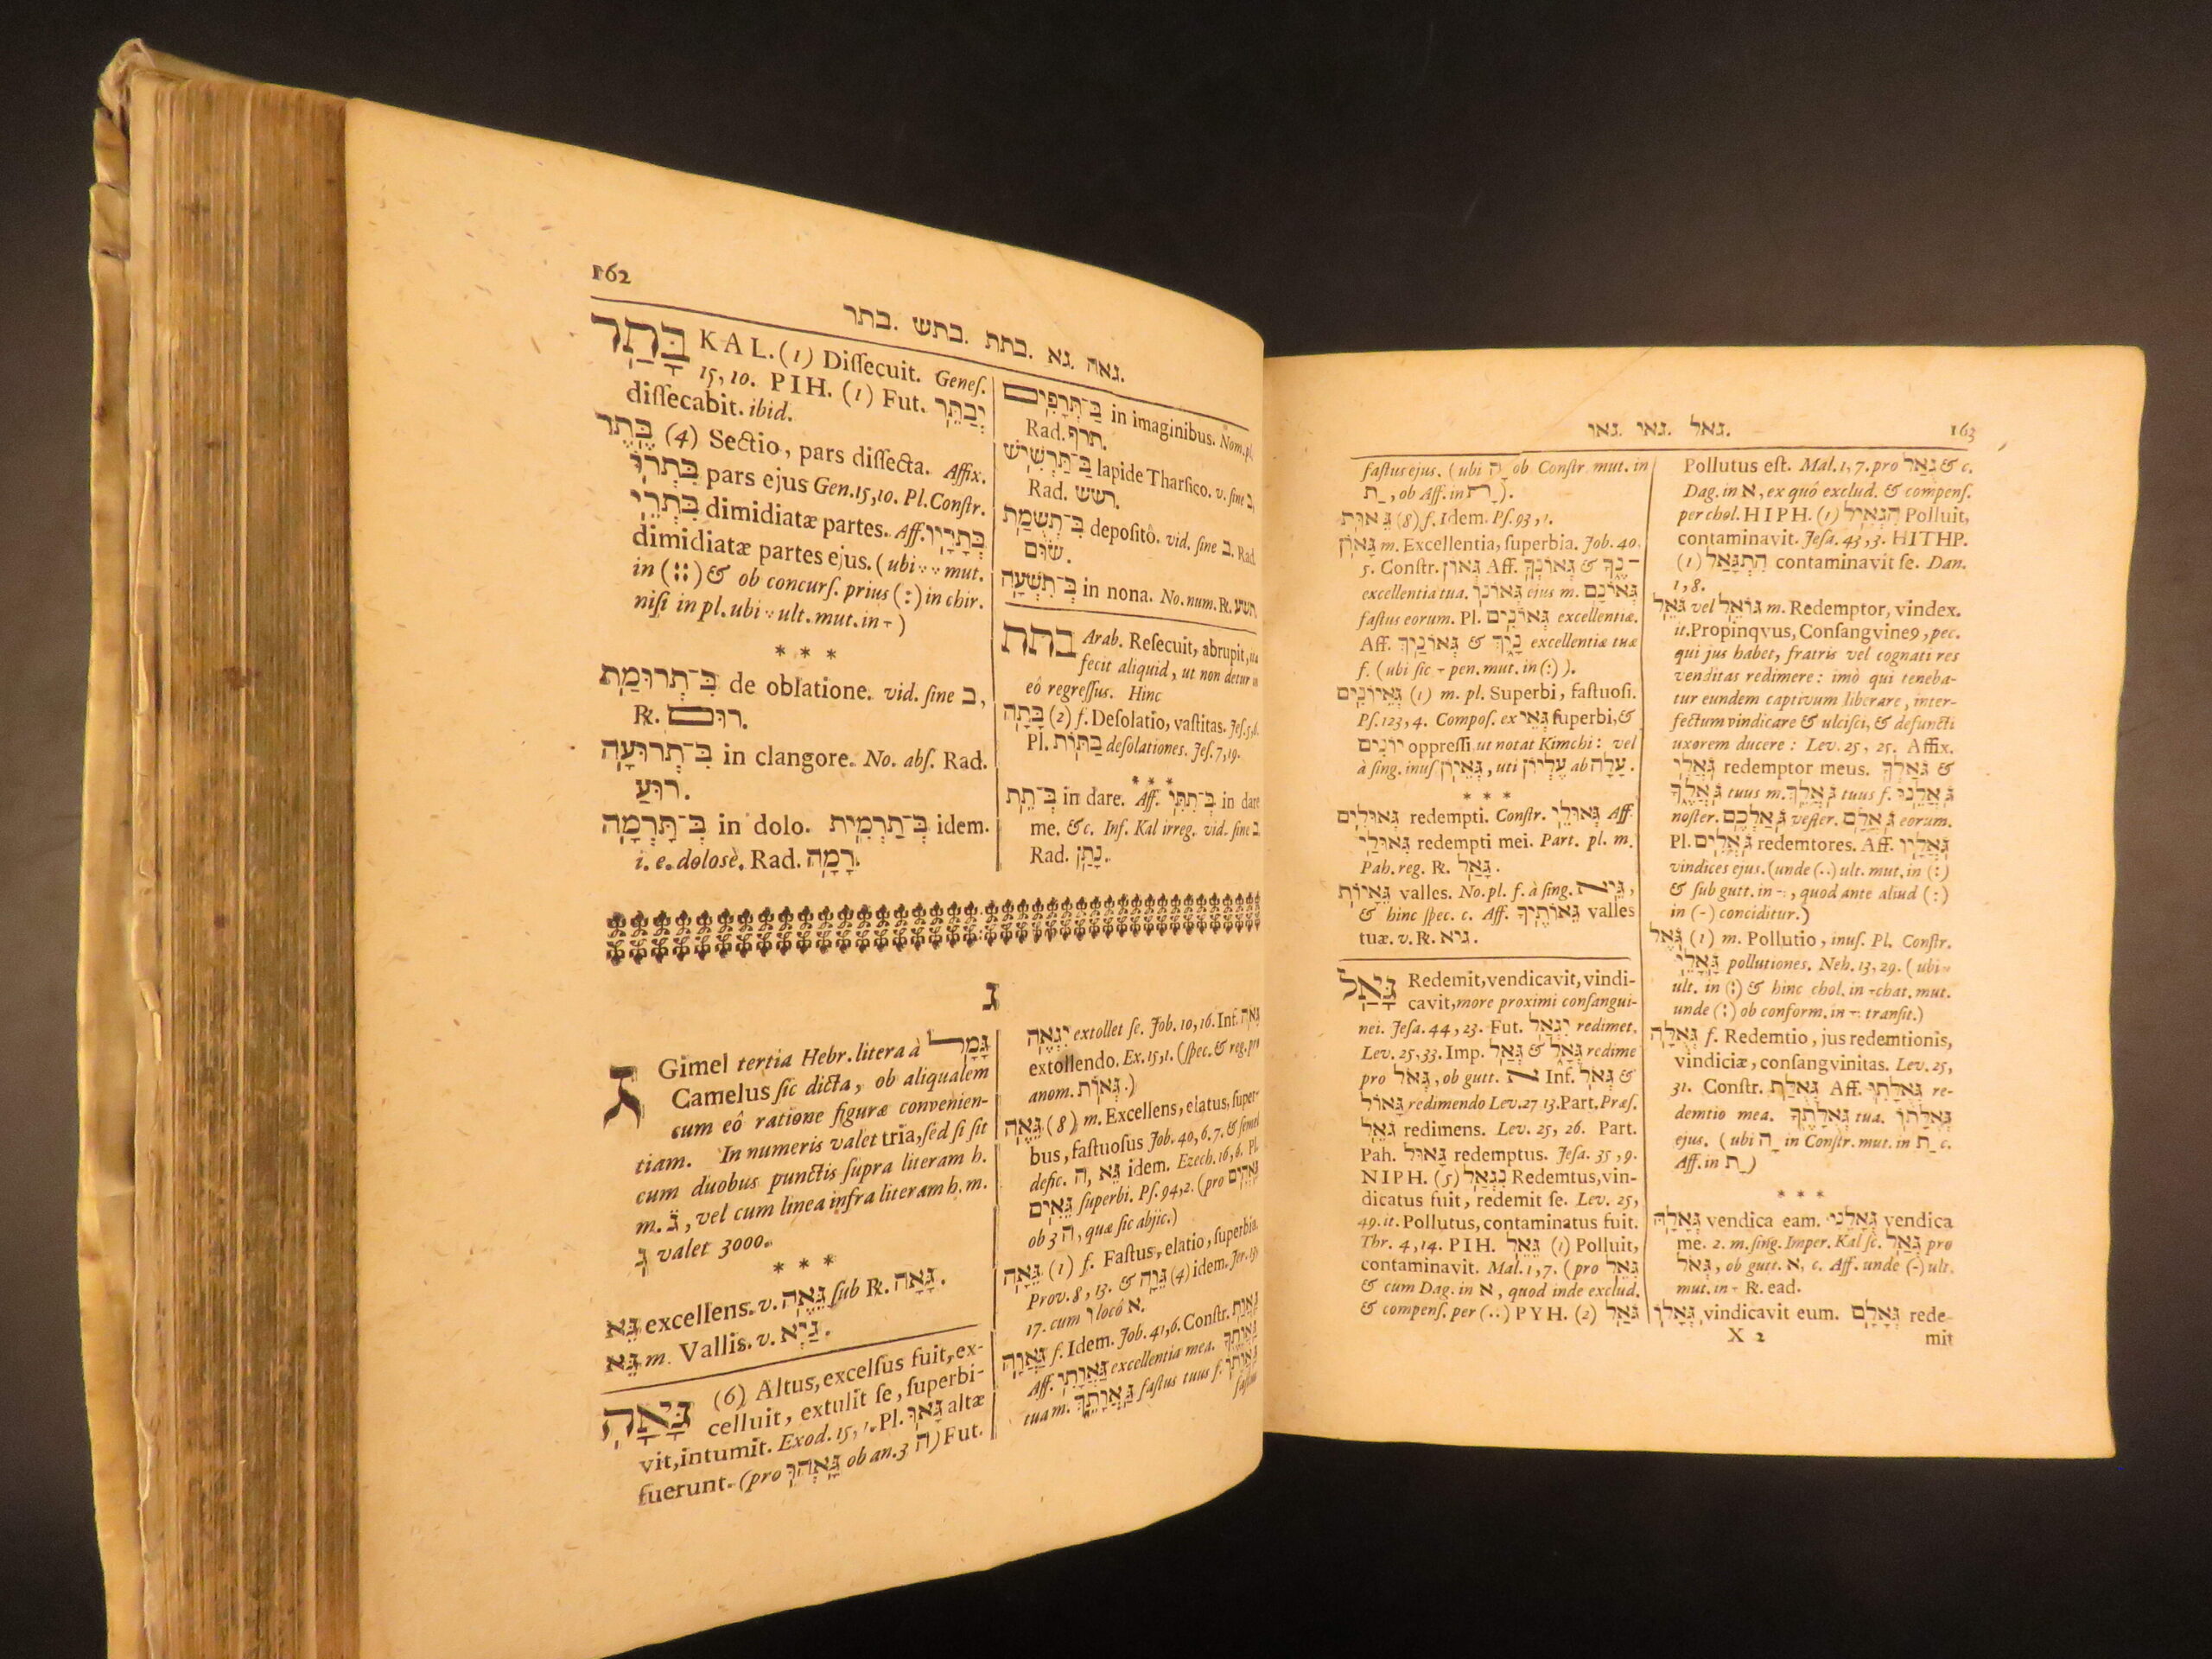 162
בתר. בתש. בתת. גא. גאה.
בָּתַר KAL. (1) Diſſecuit. Geneſ.
15, 10. PIH. (1) Fut. יְבַתֵּר
diſſecabit. ibid.
בֶּתֶר (4) Sectio, pars diſſecta. Affix.
בִּתְרוֹ pars ejus Gen. 15, 10. Pl. Conſtr.
בִּתְרֵי dimidiatæ partes. Aff. בְּתָרָיו
dimidiatæ partes ejus. (ubi mut.
in (::) & ob concurſ. prius (:) in chir.
niſi in pl. ubi ult. mut. in )
* * *
בִּ־תְרוּמַת de oblatione. vid. ſine ב,
R. רוּם.
בִּ־תְרוּעָה in clangore. No. abſ. Rad.
רוּעַ.
בְּ־תָרְמָה in dolo. בְּ־תַרְמִית idem.
i. e. dolosè. Rad. רָמָה.
בַּ־תְּרָפִים in imaginibus. Nom. pl.
Rad. תרף.
בַּ־תַּרְשִׁישׁ lapide Tharſico. v. ſine ב,
Rad. תשש.
בִּ־תְשֻׂמַת depoſitô. vid. ſine ב. Rad.
שׂוּם.
בְּ־תִשְׁעָה in nona. No. num. R. תשע.
בתת Arab. Reſecuit, abrupit, ita
fecit aliquid, ut non detur in
eô regreſſus. Hinc
בָּתָה (2) f. Deſolatio, vaſtitas. Jeſ. 5, 6.
Pl. בַּתּוֹת deſolationes. Jeſ. 7, 19.
* * *
בְּ־תֵת in dare. Aff. בְּ־תִתִּי in dare
me. &c. Inf. Kal irreg. vid. ſine ב
Rad. נָתַן.
ג
ג Gimel tertia Hebr. litera à גָּמָל
Camelus ſic dicta, ob aliqualem
cum eô ratione figuræ convenien-
tiam. In numeris valet tria, ſed ſi ſit
cum duobus punctis ſupra literam h.
m. ג̈, vel cum linea infra literam h. m.
ג valet 3000.
* * *
גֵּא excellens. v. גֵּאֶה ſub R. גָּאָה.
גֵּא m. Vallis. v. גַּיְא.
גָּאָה (6) Altus, excelſus fuit, ex-
celluit, extulit ſe, ſuperbi-
vit, intumit. Exod. 15, 1. Pl. גָּאוּ altæ
fuerunt. (pro גָּאֲהוּ ob an. 3 ה) Fut.
יִגְאֶה extollet ſe. Job. 10, 16. Inf. גָּאֹה
extollendo. Ex. 15, 1. (ſpec. & reg. pro
anom. גְּאוֹת.)
גֵּאֶה (8) m. Excellens, elatus, ſuper-
bus, faſtuoſus Job. 40, 6. 7. & ſemel
defic. ה, גֵּא idem. Ezech. 16, 6. Pl.
גֵּאִים ſuperbi. Pſ. 94, 2. (pro גֵּאֲהִים
ob 3 ה, quæ ſic abjic.)
גֵּאָה (1) f. Faſtus, elatio, ſuperbia.
Prov. 8, 13. & גֵּוָה (4) idem. Jer. 13,
17. cum ו locô א.
גַּאֲוָה f. Idem. Job. 41, 6. Conſtr. גַּאֲוַת
Aff. גַּאֲוָתִי excellentia mea. גַּאֲוָתְךָ
tua m. גַּאֲוָתֵךְ faſtus tuus f. גַּאֲוָתוֹ
faſtus
גאו. גאי. גאל. 163
faſtus ejus. (ubi ה ob Conſtr. mut. in
ת, ob Aff. in ת).
גֵּאוּת (8) f. Idem. Pſ. 93, 1.
גָּאוֹן m. Excellentia, ſuperbia. Job. 40.
5. Conſtr. גְּאוֹן Aff. גְּאוֹנְךָ & ־נֶךָ
excellentia tua. גְּאוֹנוֹ ejus m. גְּאוֹנָם
faſtus eorum. Pl. גְּאוֹנִים excellentiæ.
Aff. גְּאוֹנַיִךְ & נָיִךְ excellentiæ tuæ
f. (ubi ſic pen. mut. in (:) ).
גַּאֲיוֹנִים (1) m. pl. Superbi, faſtuoſi.
Pſ. 123, 4. Compoſ. ex גְּאֵי ſuperbi, &
יוֹנִים oppreſſi, ut notat Kimchi: vel
à ſing. inuſ גַּאֲיוֹן, uti עֶלְיוֹן ab עָלָה.
* * *
גְּאוּלִים redempti. Conſtr. גְּאוּלֵי Aff.
גְּאוּלַי redempti mei. Part. pl. m.
Pah. reg. R. גָּאַל.
גֵּאָיוֹת valles. No. pl. f. à ſing. גַּיְא,
& hinc ſpec. c. Aff. גֵּאוֹתֶיךָ valles
tuæ. v. R. גיא.
גָּאַל Redemit, vendicavit, vindi-
cavit, more proximi conſangui-
nei. Jeſa. 44, 23. Fut. יִגְאַל redimet.
Lev. 25, 33. Imp. גְּאַל & גְּאָל redime
pro גְּאֹל, ob gutt. א Inf. גְּאֹל &
גָּאוֹל redimendo Lev. 27 13. Part. Præſ.
גֹּאֵל redimens. Lev. 25, 26. Part.
Pah. גָּאוּל redemptus. Jeſa. 35, 9.
NIPH. (5) נִגְאַל Redemtus, vin-
dicatus fuit, redemit ſe. Lev. 25,
49. it. Pollutus, contaminatus fuit.
Thr. 4, 14. PIH. גֵּאֵל (1) Polluit,
contaminavit. Mal. 1, 7. (pro גִּאֵל
& cum Dag. in א, quod inde exclud.
& compenſ. per (..) PYH. (2) גֹּאַל
Pollutus eſt. Mal. 1, 7. pro גֻּאַל & c.
Dag. in א, ex quô exclud. & compenſ.
per chol. HIPH. (1) הִגְאִיל Polluit,
contaminavit. Jeſa. 43, 3. HITHP.
(1) הִתְגָּאַל contaminavit ſe. Dan.
1, 8.
גֹּאֵל vel גּוֹאֵל m. Redemptor, vindex.
it. Propinqvus, Conſangvine9, pec.
qui jus habet, fratris vel cognati res
venditas redimere: imò qui teneba-
tur eundem captivum liberare, inter-
fectum vindicare & ulciſci, & defuncti
uxorem ducere: Lev. 25, 25. Affix.
גֹּאֲלִי redemptor meus. גֹּאַלְךָ &
גֹּאֲלֶךָ tuus m. גֹּאֲלֵךְ tuus f. גֹּאֲלֵנוּ
noſter. גֹּאַלְכֶם veſter. גֹּאֲלָם eorum.
Pl. גֹּאֲלִים redemtores. Aff. גֹּאֲלָיו
vindices ejus. (unde (..) ult. mut. in (:)
& ſub gutt. in , quod ante aliud (:)
in (-) conciditur.)
גֹּאֶל (1) m. Pollutio, inuſ. Pl. Conſtr.
גָּאֳלֵי pollutiones. Neh. 13, 29. (ubi
ult. in (:) & hinc chol. in chat. mut.
unde (:) ob conform. in tranſit.)
גְּאֻלָּה f. Redemtio, jus redemtionis,
vindiciæ, conſangvinitas. Lev. 25,
31. Conſtr. גְּאֻלַּת Aff. גְּאֻלָּתִי re-
demtio mea. גְּאֻלָּתֶךָ tua. גְּאֻלָּתוֹ
ejus. (ubi ה in Conſtr. mut. in ת c.
Aff. in ת)
* * *
גְּאָלָהּ vendica eam. גְּאָלֵנִי vendica
me. 2. m. ſing. Imper. Kal ſc. גְּאַל pro
גְּאֹל, ob gutt. א, c. Aff. unde (-) ult.
mut. in R. ead.
גְּאָלוֹ vindicavit eum. גְּאָלָם rede-
X 2 mit